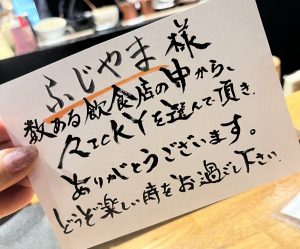 ふじやま様
数ある飲食店の中から、
久TCKYを選んで頂き
ありがとうございます。
どうぞ楽しい時をお過ごし下さい。